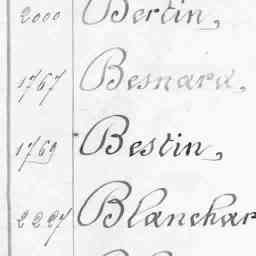 2000 Bertin,
1767 Besnard,
1769 Bestin,
2227 Blanchar